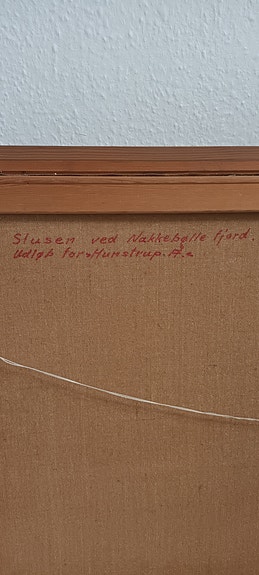 Slusen ved Nakkebølle Fjord.
Udløb for Hunstrup. Å.